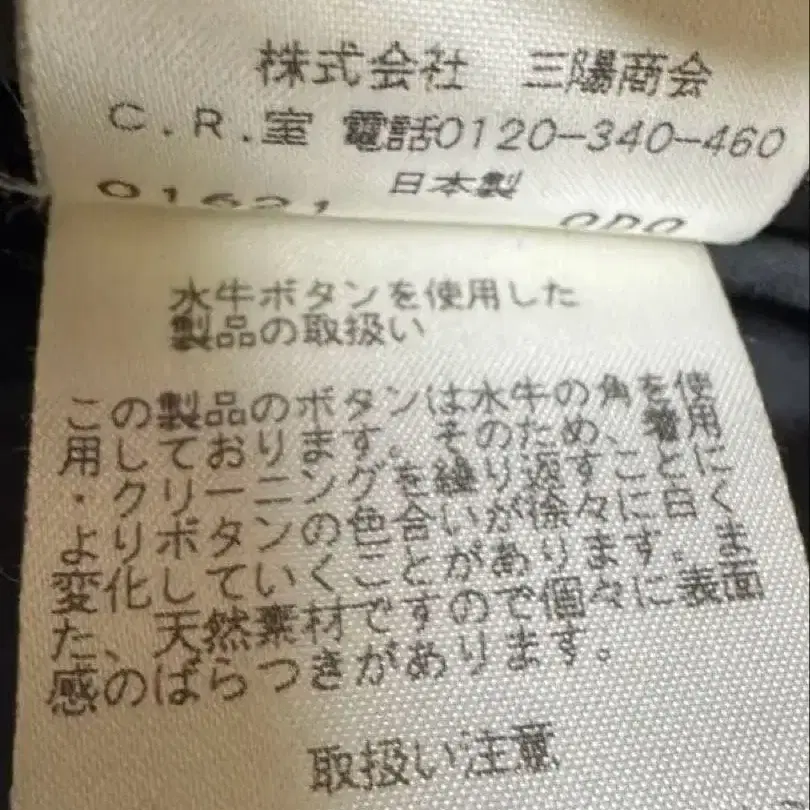 株式会社 三陽商会
C.R.室 電話0120-340-460
日本製
水牛ボタンを使用した
製品の取扱い
この製品のボタンは水牛の角を使
用しております。そのため、着用
・クリーニングを繰り返すことに
よりボタンの色合いが徐々に白く
変化していくことがあります。ま
た、天然素材ですので個々に表面
感のばらつきがあります。
取扱い注意